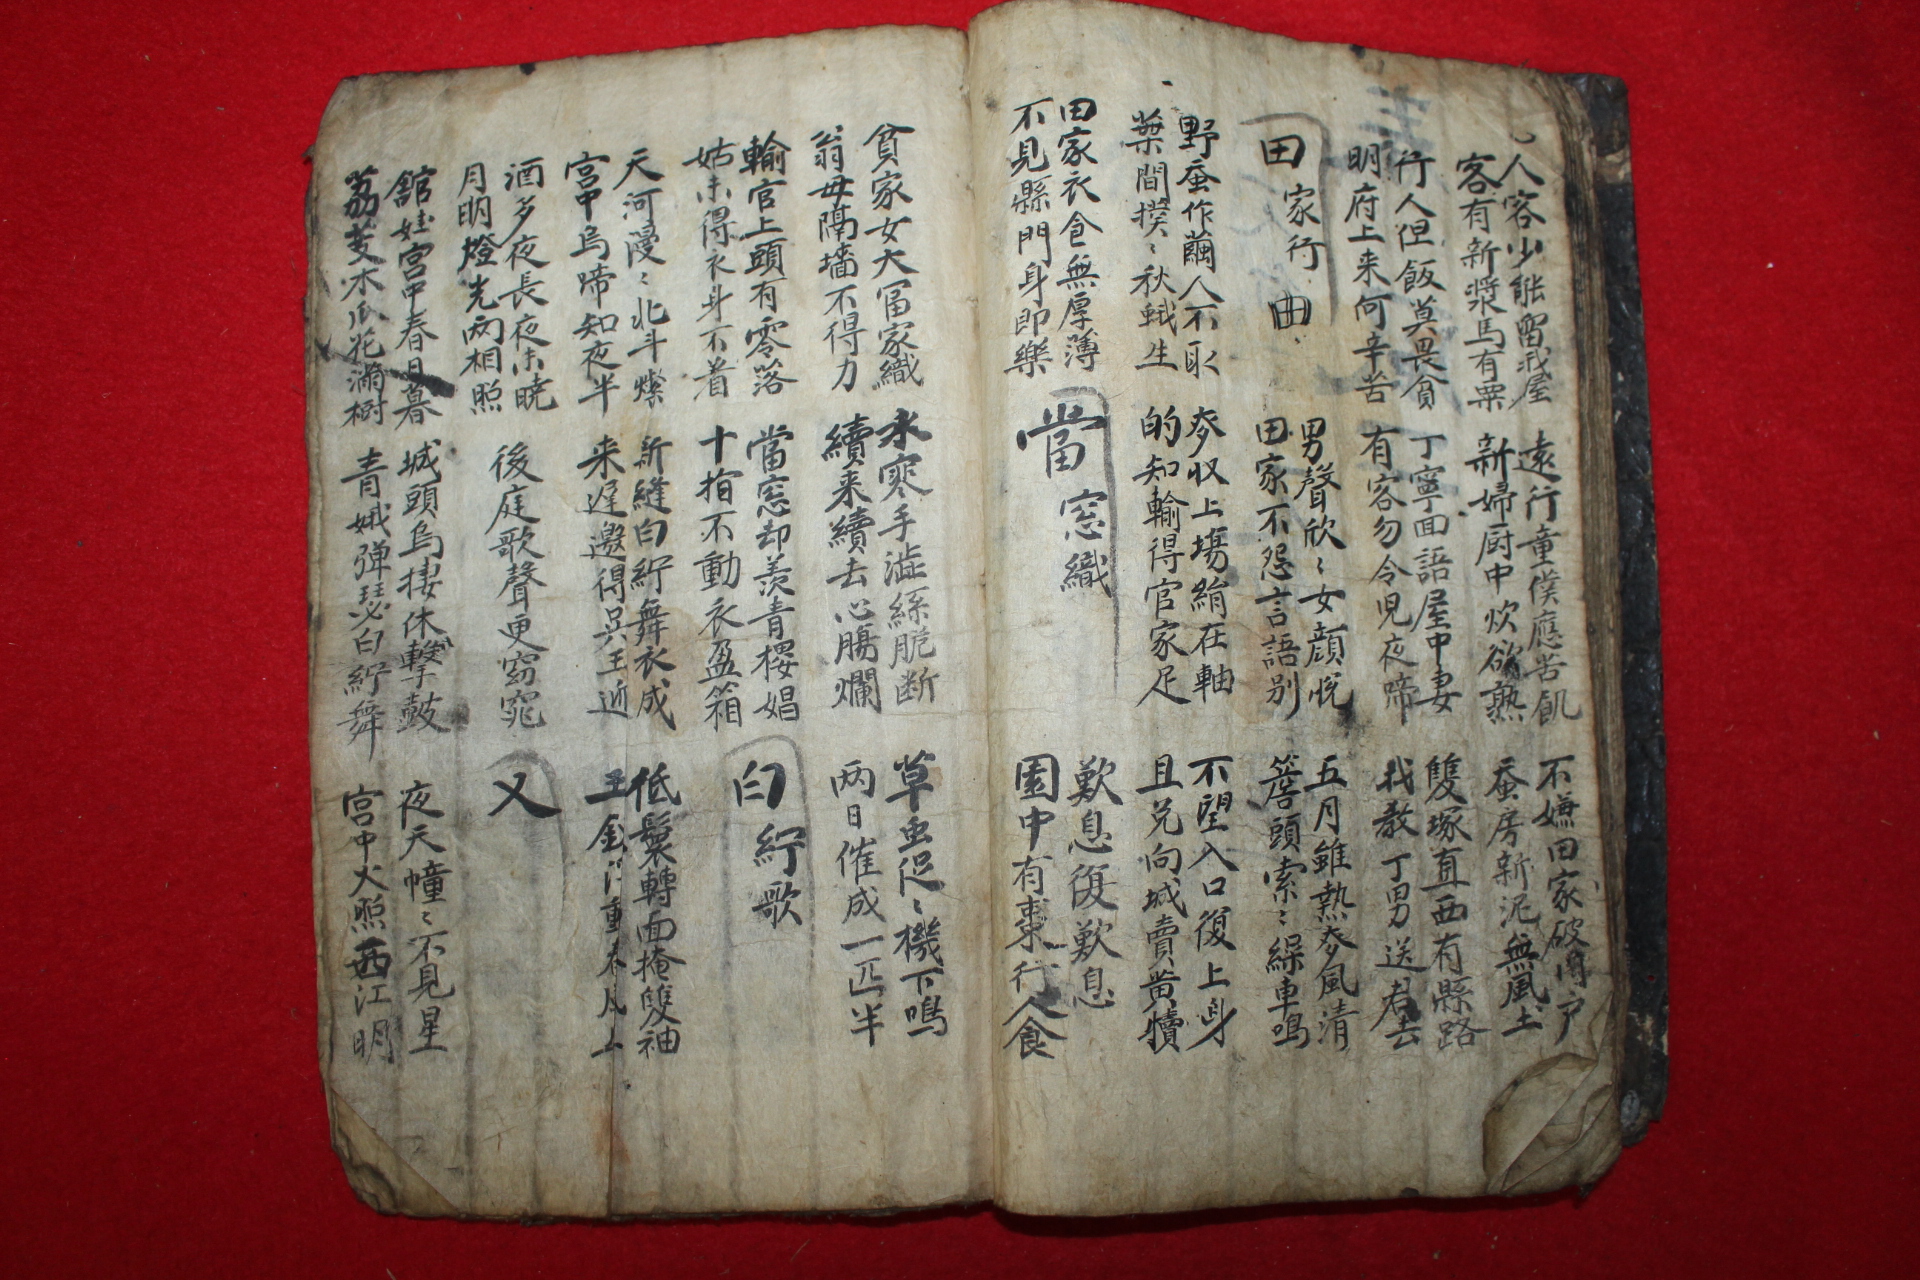 人客少能留我屋
客有新漿馬有粟
遠行童僕應苦飢
新婦厨中炊欲熟
不嫌田家破門戶
蚕房新泥無風土
行人但飯莫畏貧
明府上来何辛苦
丁寧面語屋中妻
有客勿令児夜啼
雙塚直西有縣路
我教丁男送君去
田家行 曲
男聲欣〻女顔悅
田家不怨言語别
五月雖熱麥風清
簷頭索〻繰車鳴
野蚕作繭人不取
葉間撲〻秋蛾生
麥収上塲絹在軸
的知輸得官家足
不望入口復上身
且兑向城賣黄犢
田家衣食無厚薄
不見縣門身即樂
當窓織
歎息復歎息
園中有棗行人食
貧家女大冨家織
翁母隔墻不得力
水寒手澁絲脆断
續来續去心膓爛
草虫促〻機下鳴
两日催成一匹半
輸官上頭有零落
姑未得衣身不着
當窓却羡青樓娼
十指不動衣盈箱
白紵歌
天河漫〻北斗燦
宮中烏啼知夜半
新縫白紵舞衣成
来遲邀得吳王迎
低鬟轉面掩雙袖
玉釵
酒多夜長夜未曉
月明燈光两相照
後庭歌聲更窈窕
又
舘娃宮中春日暮
荔芰木瓜花滿樹
城頭烏捿休擊鼓
青娥弹瑟白紵舞
夜天幢〻不見星
宮中火照西江明